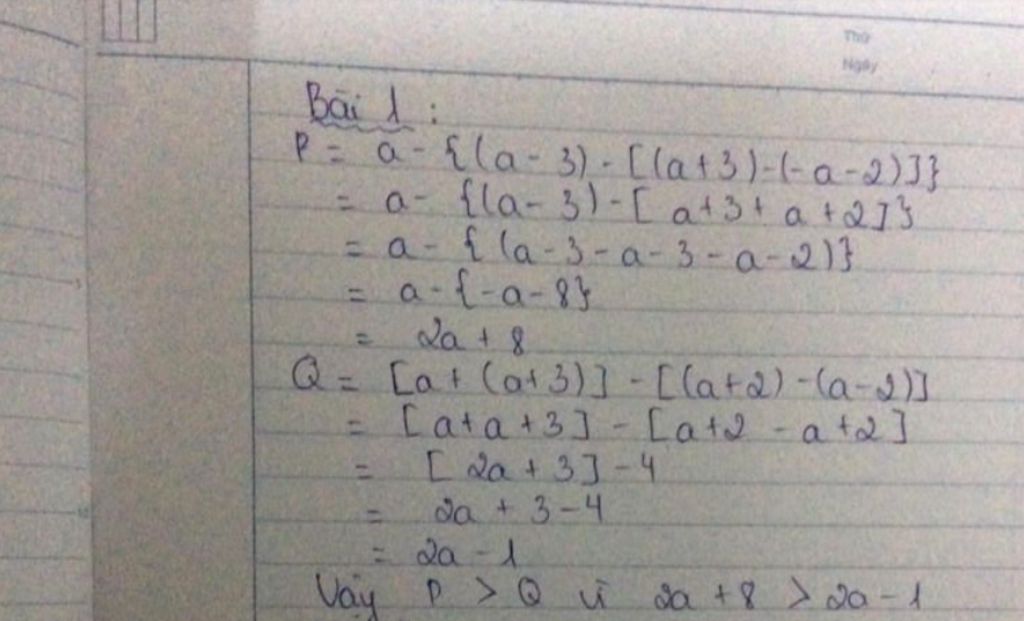 Thứ
Ngày
Bài 1 :
P = a - {(a - 3) - [(a + 3) - (- a - 2)]}
= a - {(a - 3) - [ a + 3 + a + 2]}
= a - { (a - 3 - a - 3 - a - 2)}
= a - {-a - 8}
= 2a + 8
Q = [a + (a + 3)] - [(a + 2) - (a - 2)]
= [a + a + 3] - [a + 2 - a + 2]
= [ 2a + 3] - 4
= 2a + 3 - 4
= 2a - 1
Vậy P > Q vì 2a + 8 > 2a - 1